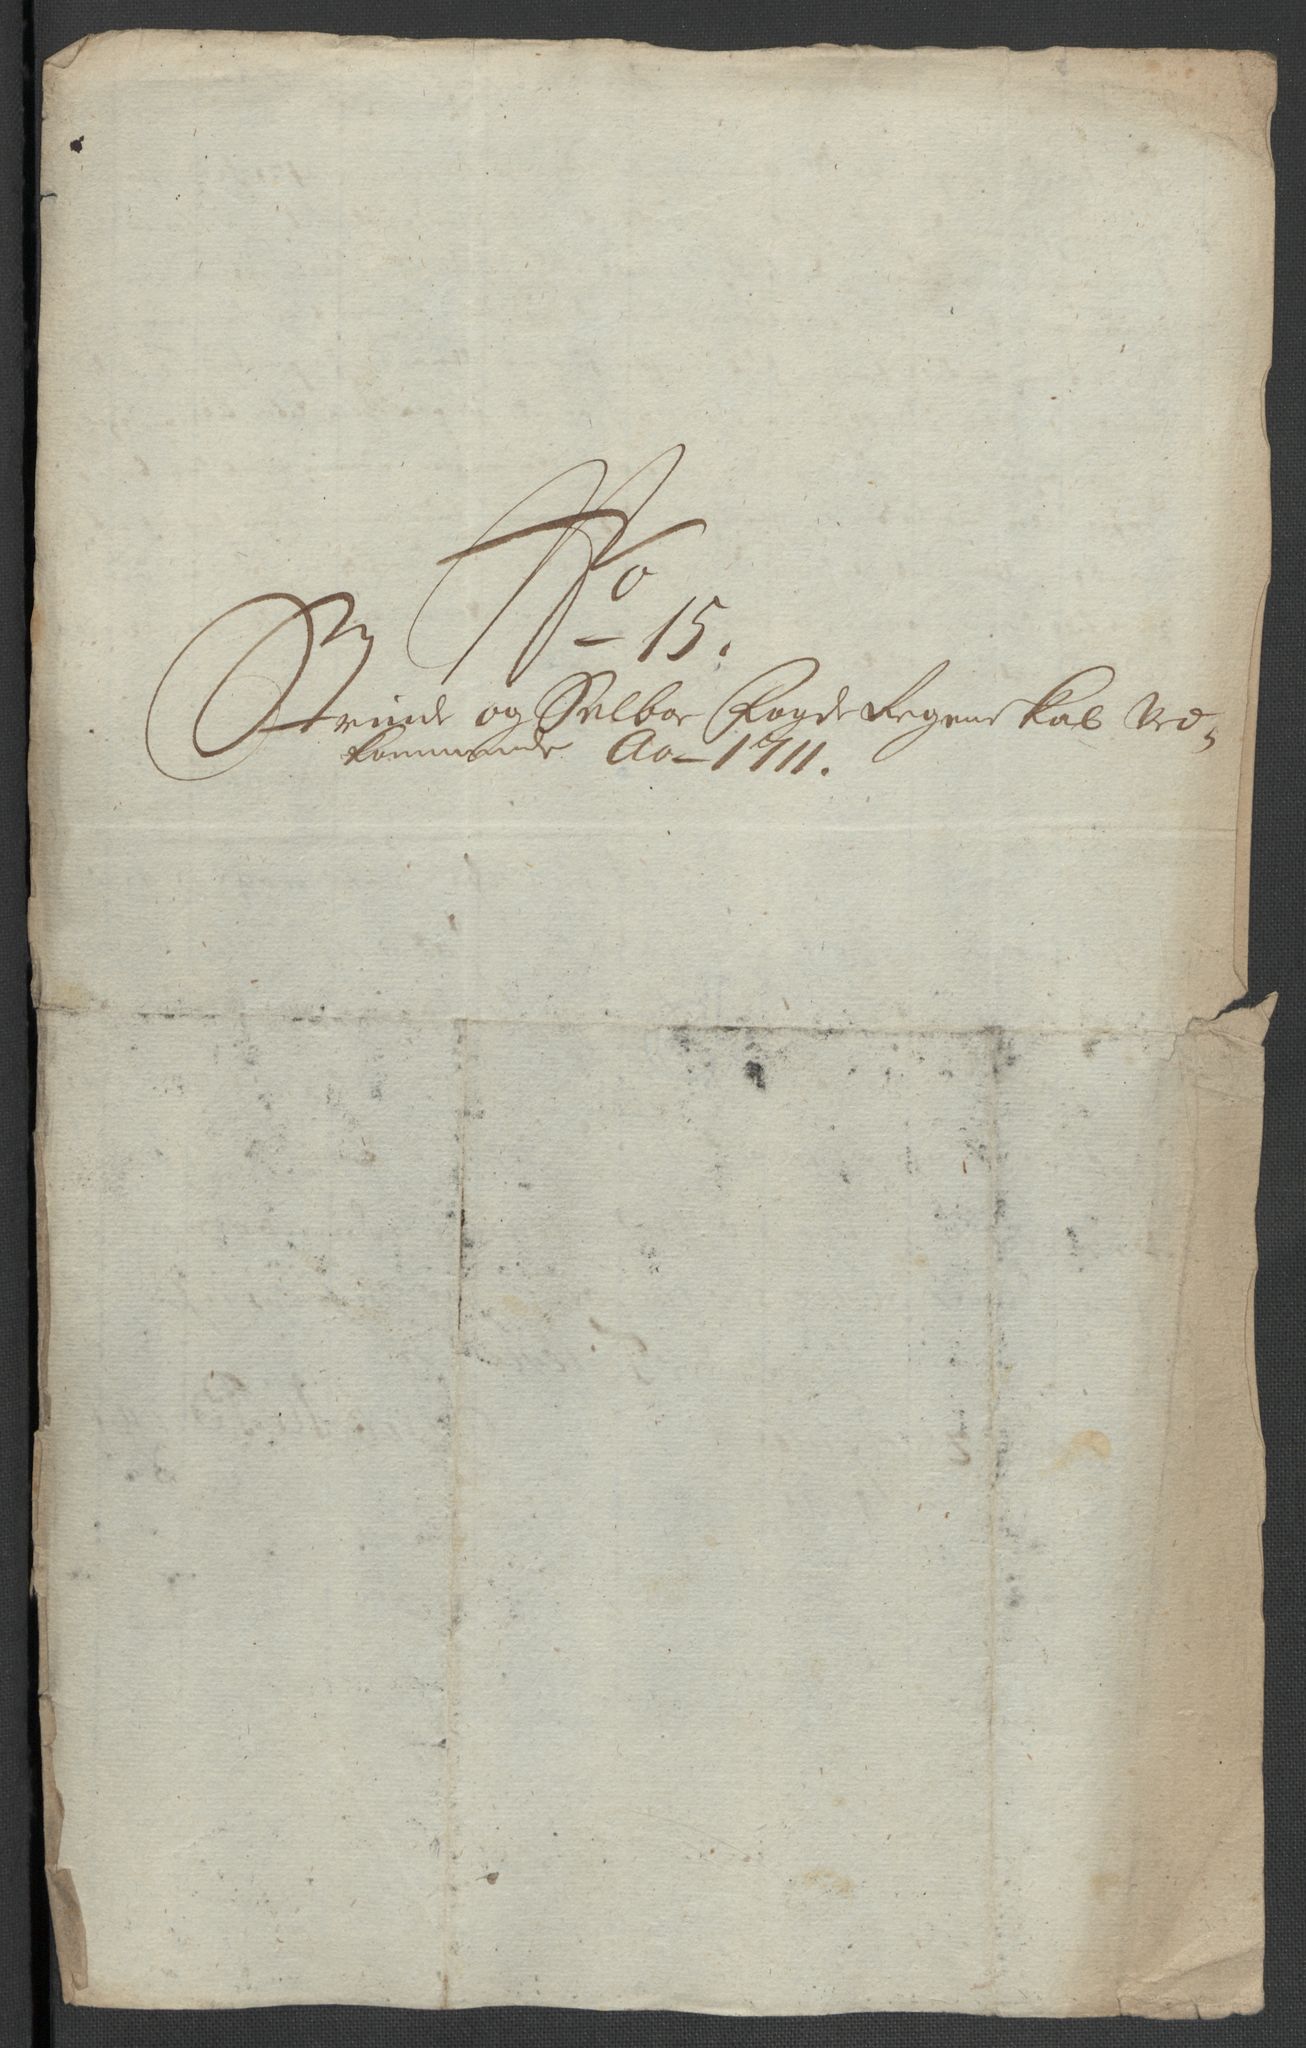 No
15.
Strinde og Selboe Fogde Regenskab Ved,
kommende Ao 1711.